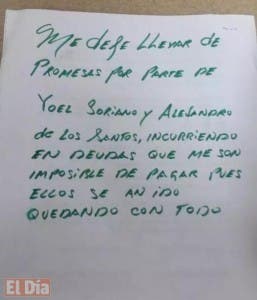 ME DEJE LLEVAR DE
PROMESAS POR PARTE DE
YOEL SORIANO Y ALEJANDRO
de LOS SANTOS, INCURRIENDO
EN DEUDAS QUE ME SON
IMPOSIBLE DE PAGAR, PUES
ELLOS SE AN IDO
QUEDANDO CON TODO
El Día